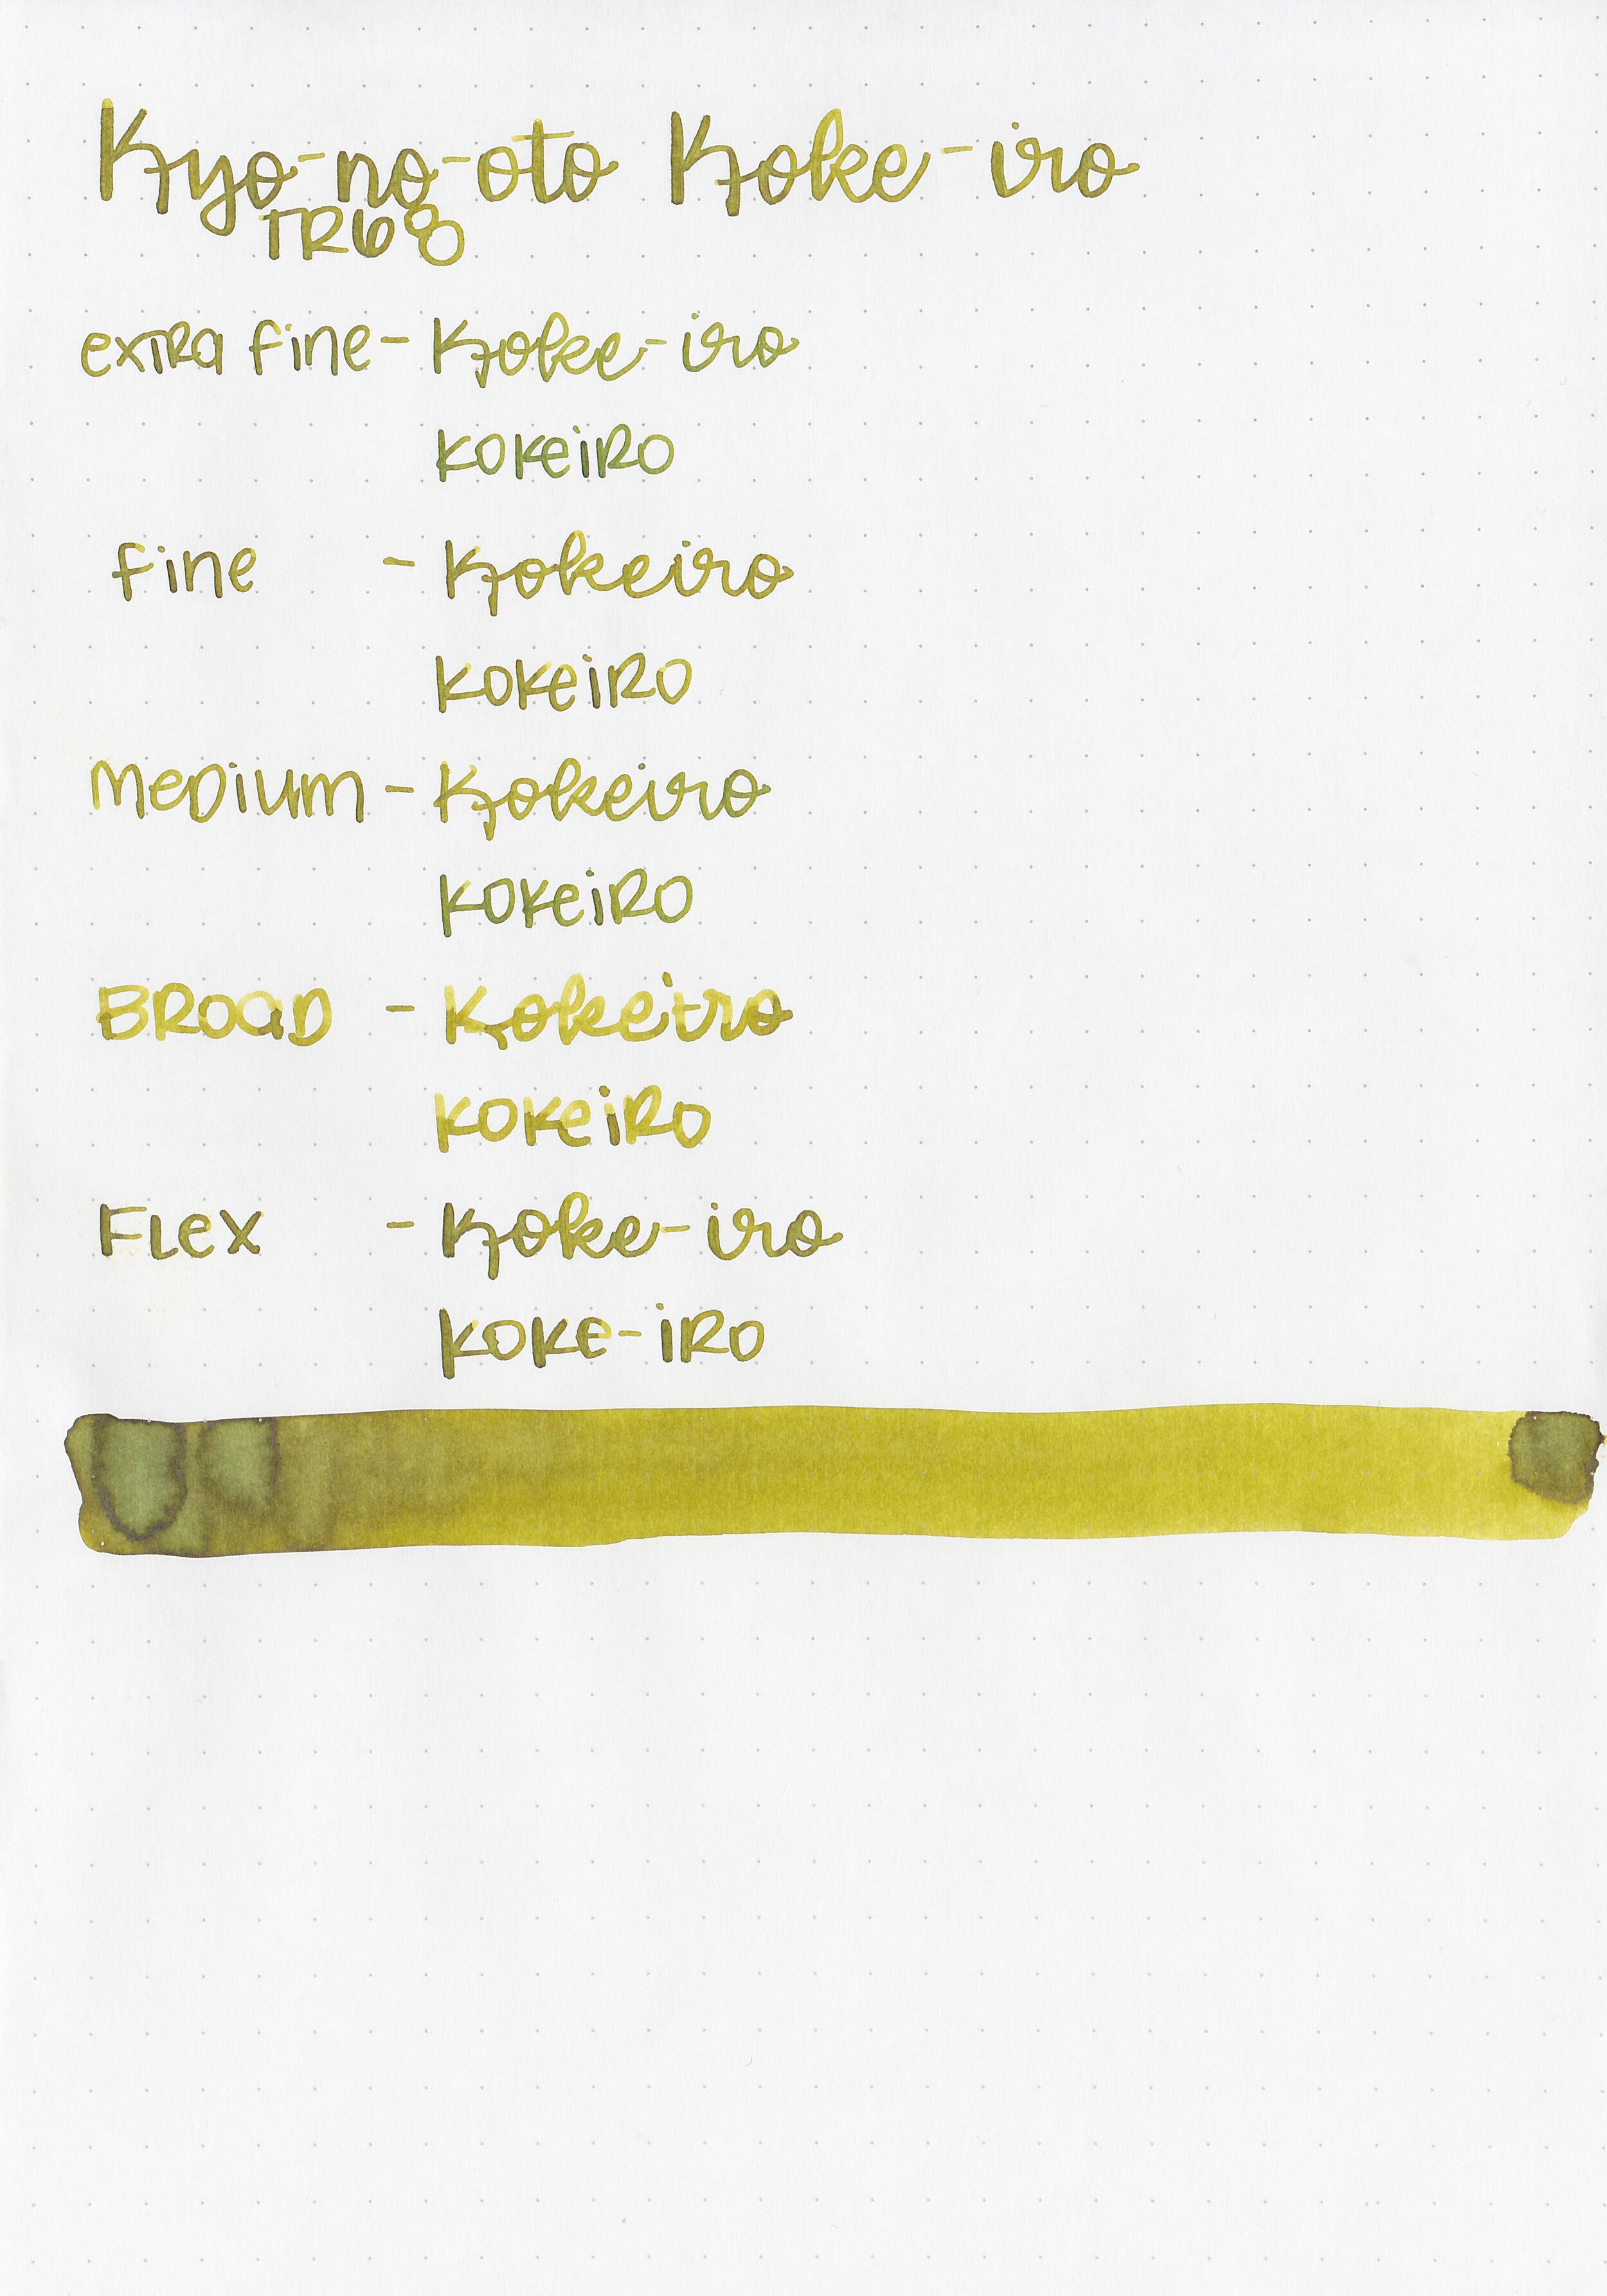 Kyo-no-oto Koke-iro
TR68
extra fine - Koke-iro
KOKeiRO
fine - Kokeiro
KOKeiRO
MeDium - Kokeiro
KOKeiRO
BROaD - Kokeiro
KOKeiRO
FLex - Koke-iro
KOKe-iRO